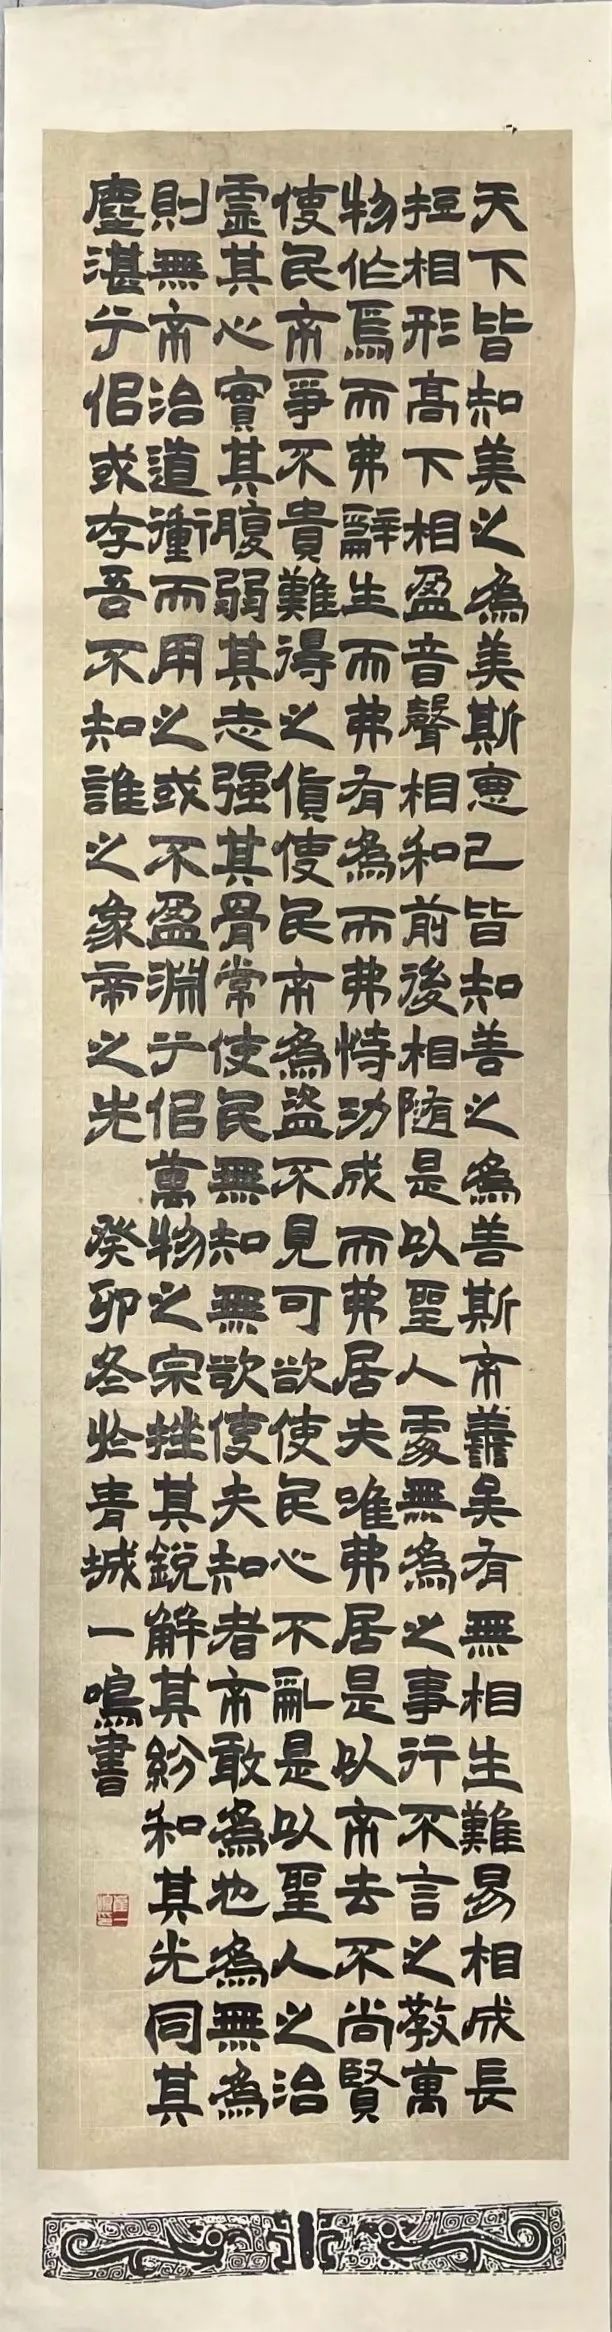 天下皆知美之為美斯惡已皆知善之為善斯不善矣有無相生難易相成長
短相形高下相盈音聲相和前後相随是以聖人處無為之事行不言之教萬
物作焉而弗辭生而弗有為而弗恃功成而弗居夫唯弗居是以不去不尚賢
使民不爭不貴難得之貨使民不為盜不見可欲使民心不亂是以聖人之治
虛其心實其腹弱其志强其骨常使民無知無欲使夫知者不敢為也為無為
則無不治道衝而用之或不盈淵兮佀萬物之宗挫其銳解其紛和其光同其
塵湛兮佀或存吾不知誰之象帝之先 癸卯冬於青城一鳴書